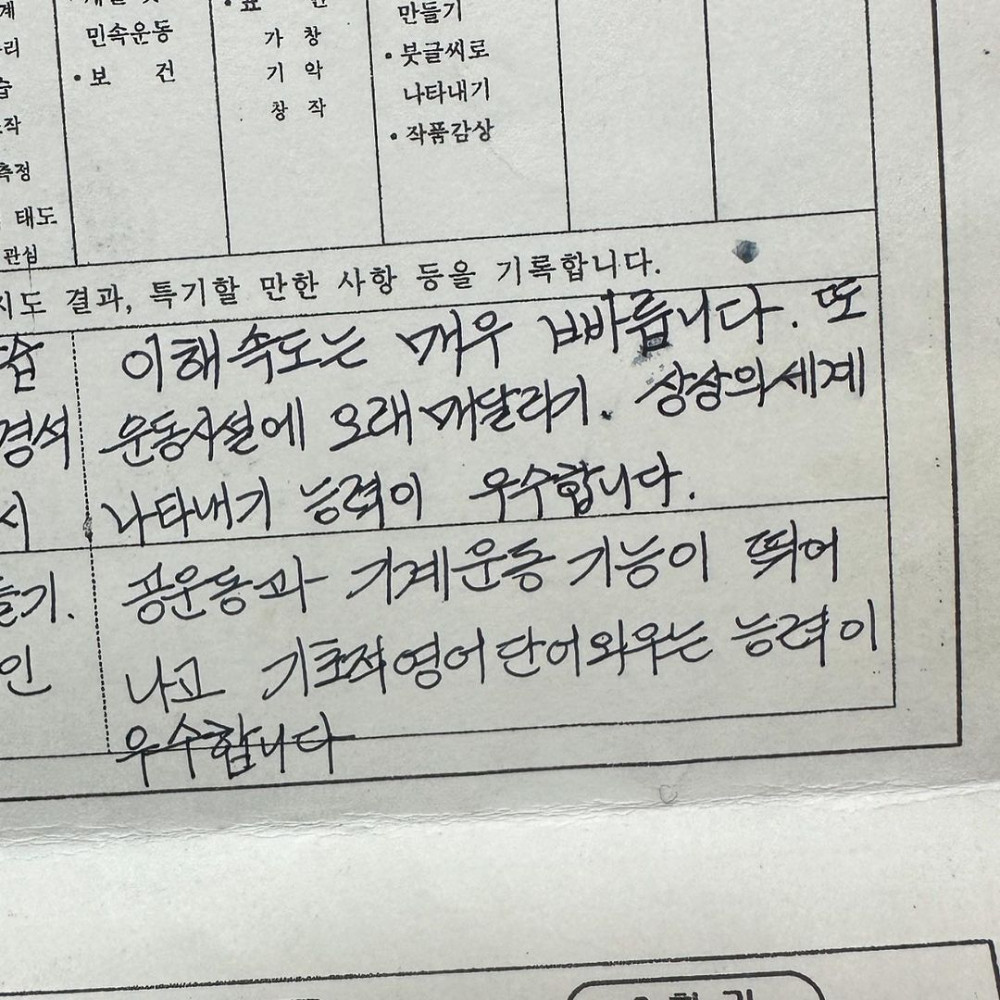 민속운동
• 보 건
가 창
기 악
창 작
만들기
• 붓글씨로
나타내기
• 작품감상
측정
태도
관심
시도 결과, 특기할 만한 사항 등을 기록합니다.
이해속도는 매우 빠릅니다. 또
경석 운동시설에 오래매달리기. 상상의세계
시 나타내기 능력이 우수합니다.
들기. 공운동과 기계운동 기능이 뛰어
인 나고 기초적영어단어외우는 능력이
우수합니다